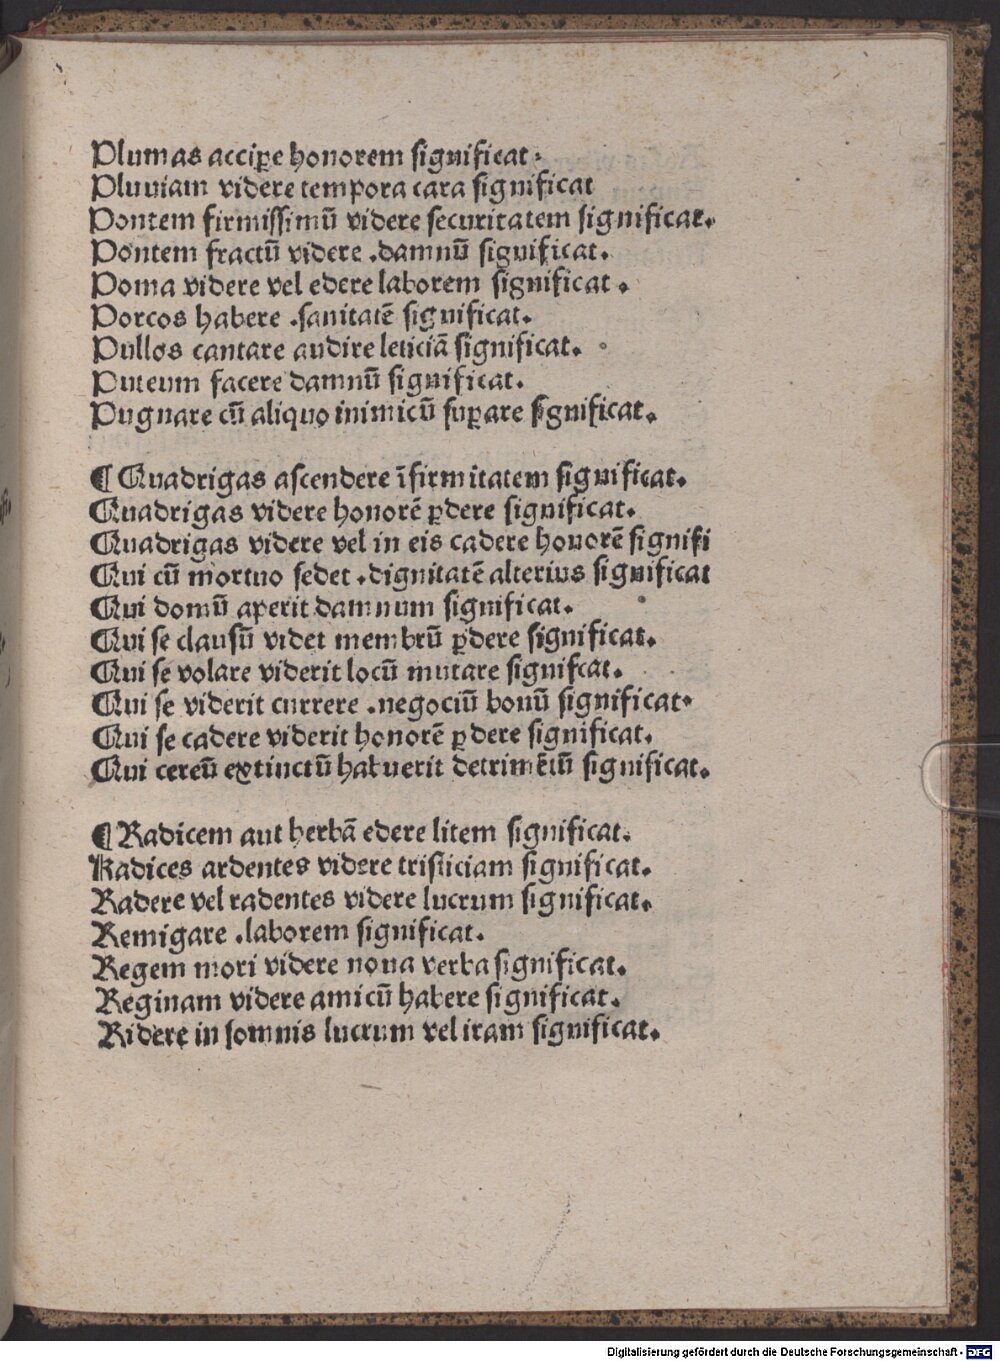 Plumas accipe honorem significat.
Pluuiam videre tempora cara significat
Pontem firmissimū videre securitatem significat.
Pontem fractū videre .damnū significat.
Poma videre vel edere laborem significat .
Porcos habere .sanitatē significat.
Pullos cantare audire leticiā significat.
Puteum facere damnū significat.
Pugnare cū aliquo inimicū suꝑare significat.
¶ Quadrigas ascendere īfirmitatem significat.
Quadrigas videre honorē ꝑdere significat.
Quadrigas videre vel in eis cadere honorē signifi
Qui cū mortuo sedet .dignitatē alterius significat
Qui domū aperit damnum significat.
Qui se clausū videt membrū ꝑdere significat.
Qui se volare viderit locū mutare signifcat.
Qui se viderit currere .negociū bonū significat.
Qui se cadere viderit honorē ꝑdere significat.
Qui cereū extinctū habuerit detrimētū significat.
¶ Radicem aut herbā edere litem significat.
Radices ardentes videre tristiciam significat.
Radere vel radentes videre lucrum significat.
Remigare .laborem significat.
Regem mori videre noua verba significat.
Reginam videre amicū habere significat.
Ridere in somnis lucrum vel iram significat.
Digitalisierung gefördert durch die Deutsche Forschungsgemeinschaft - DFG